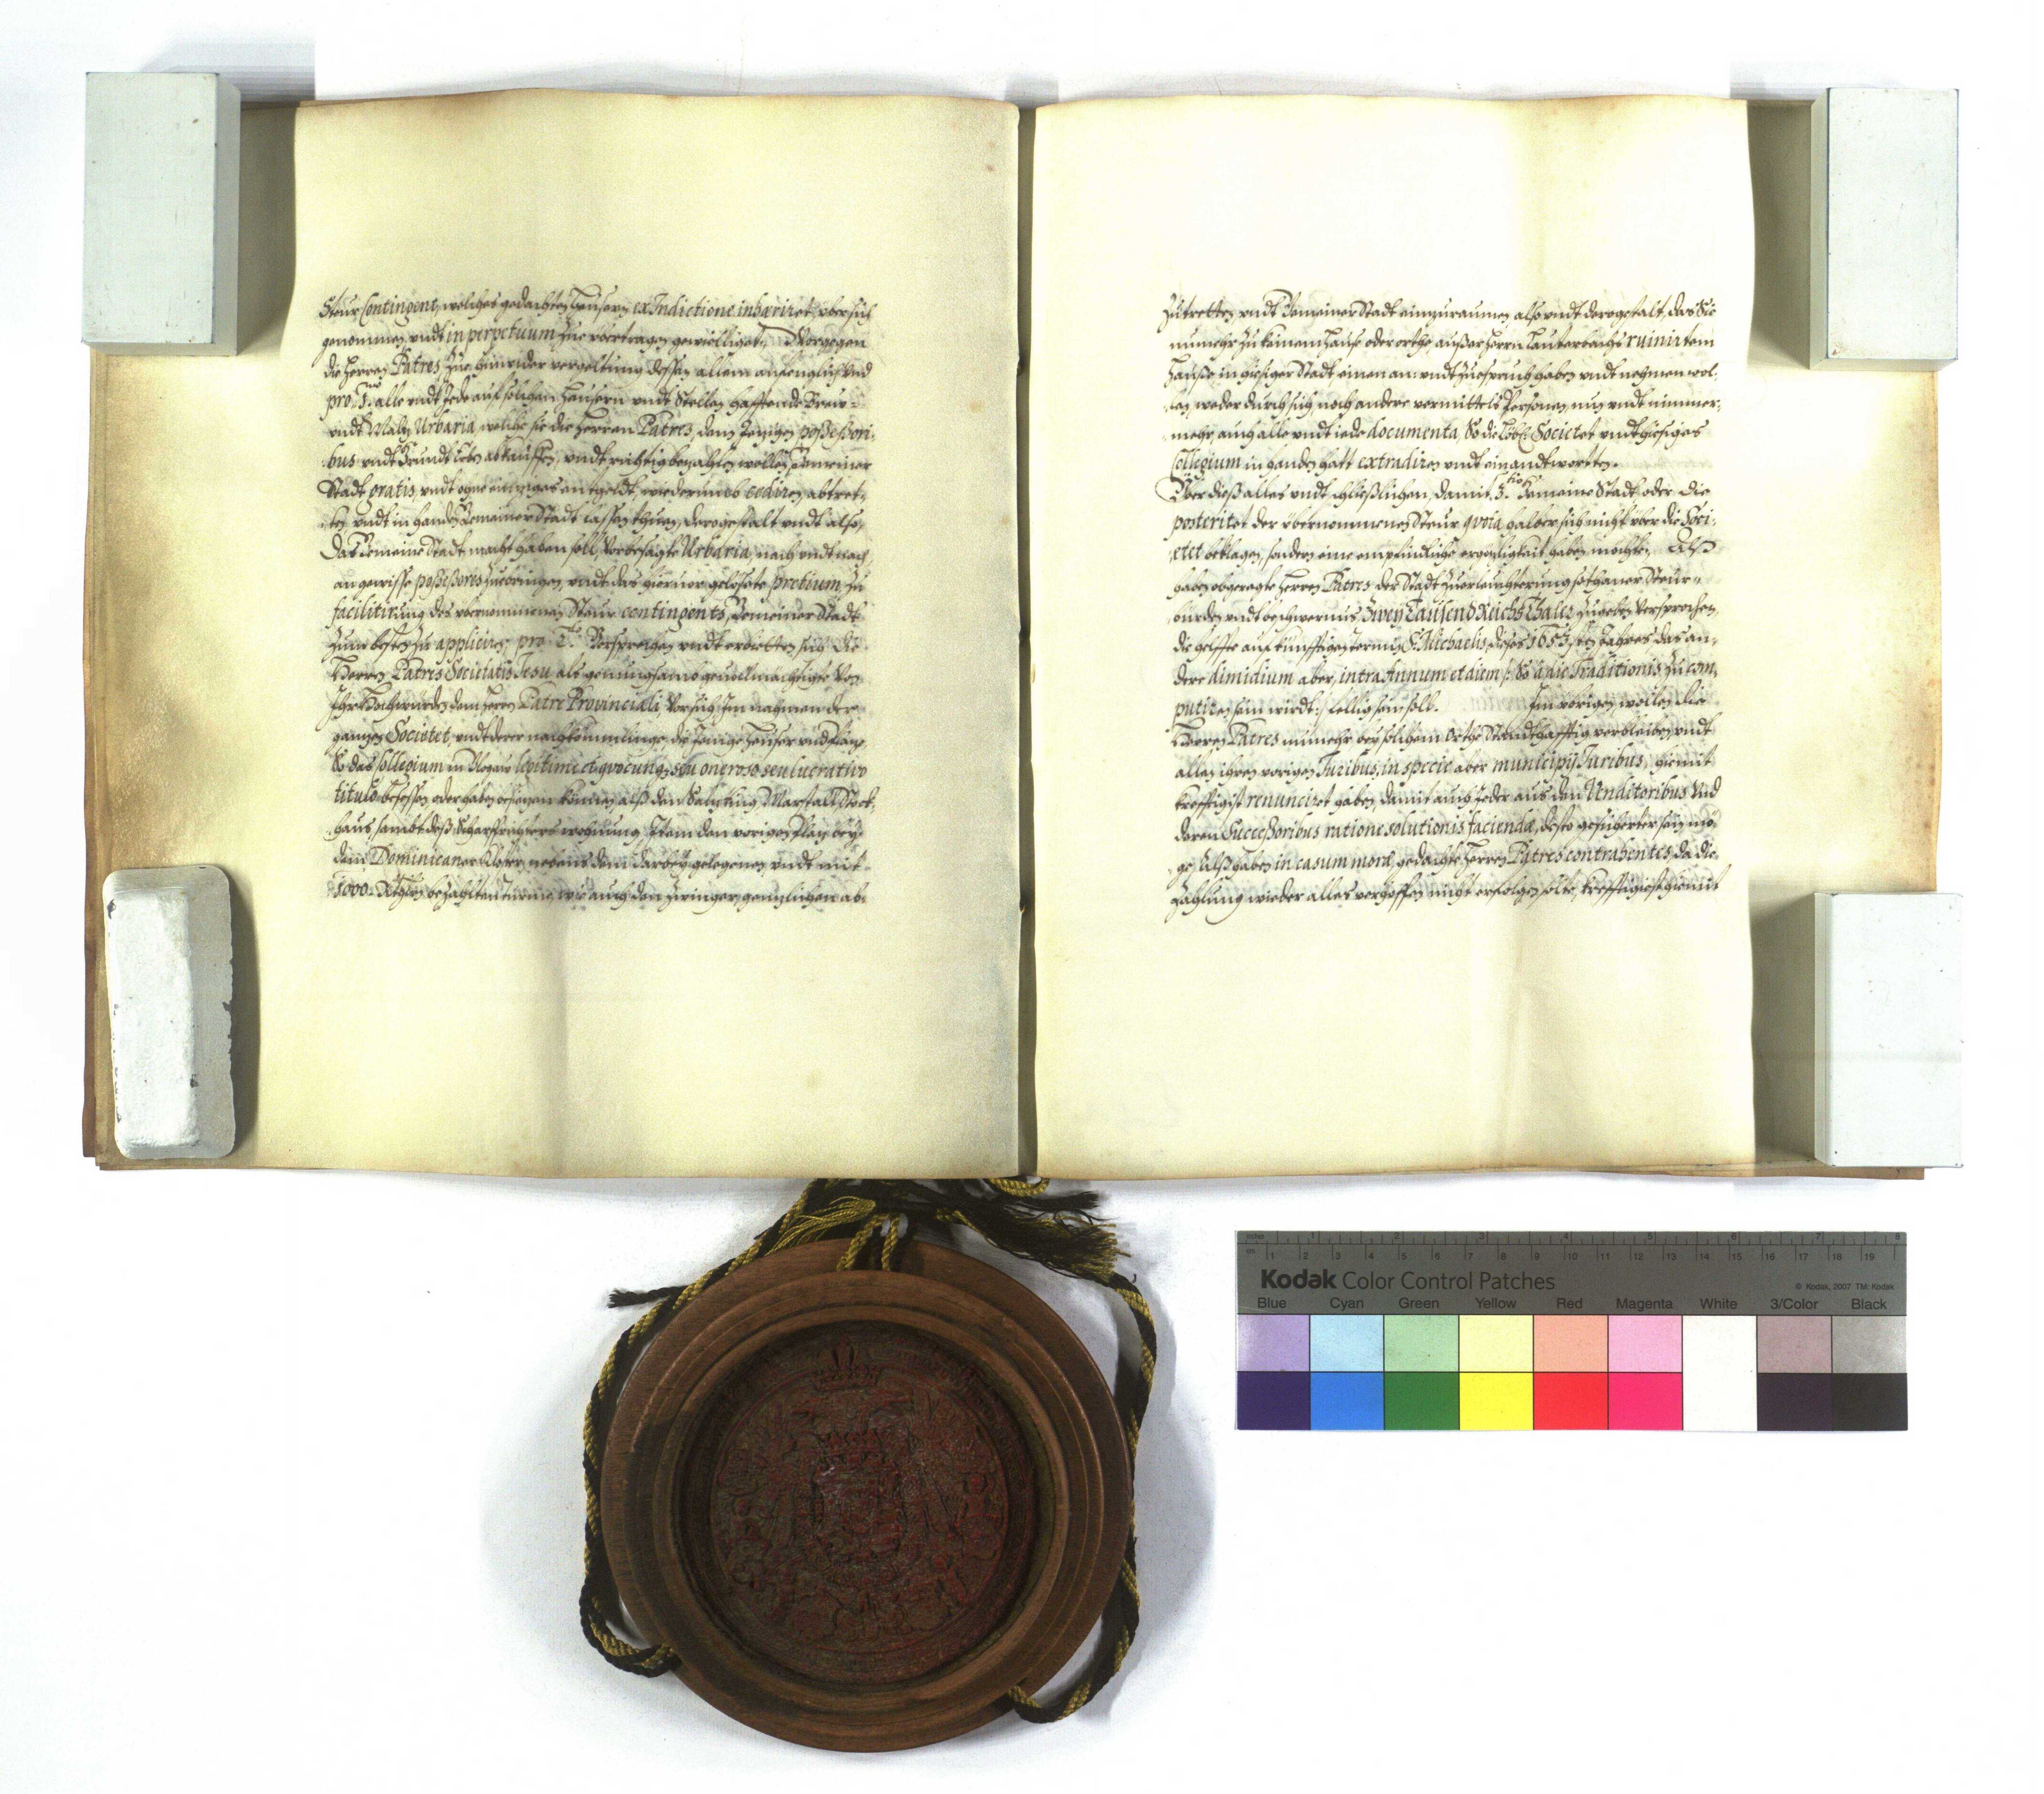 Steur Contingent, welches gedachten heusern ex Indictione inhæriret, vber sich
genommen, vndt in perpetuum Zue vertragen gewilliget. Worgegen
die Herren Patres Zue hinwider vergeltung deßen allem anfenglich Vnd
pro 1.mo alle vndt Jede auf solchen heusern vndt Stellen hafftende Brew-
vndt Maltz Urbaria, welche sie die Herren Patres, denen Jenigen possessori-
bus vndt Grundt abkauffen, vndt richtig bezahlen wollen, Gemeiner
Stadt gratis, vndt ohne einziges entgeldt, wiederumb cediren, abtret-
ten vndt in handen Gemeiner Stadt lassen thuen, dergestalt vndt also,
das Gemeine Stadt macht haben soll, Vorbesagte Urbaria, nach vndt nach,
an gewisse possessores Zuebringen, vndt das hieruor gelosete pretium, zu
facilitirung des vbernommenen Steur contingents, Gemeiner Stadt
zum besten Zu appliciren, pro 2.do Versprechen vndt erbietten sich die
Herren Patres Societatis Jesu als genungsamb geuollmächtigte Von
Ihr Hochwürden dem Herrn Patre Provinciali, Vor sich, Im nahmen der
gantzen Societet, vndt derer nachkömmlinge, die Jenige heuser vnd Plätze,
So das Collegium in Glogaw legitime et quocunq seu oneroso seu lucrativo
titulo besessen oder haben können, alß den Marstall, Stock-
haus sambt deß Scharffrichters wohnung, Item den vorigen Platz bey
dem Dominicaner Kloster, nebens dem darbey gelegenen, vndt mit
1000. Rthlrn bezahlten turme, wie auch den zwinger, gentzlichen ab-
Zutretten, vndt Gemeiner Stadt einzuraumen, also vndt dergestalt, das Sie
numehr zu keinem hause oder orthe, außer Herrn Lauterbachs ruinirtem
hause in hiesiger Stadt einen an: vndt Zuespruch haben vndt nehmen wol-
len, weder durch sich, noch andere vermittelß Personen, nun vndt nimmer-
mehr, auch alle vndt iede documenta, So die Löbl. Societet vndt hiesiges
Collegium in handen hatt extradiren vndt einandtworten.
Vber dieß alles vndt schließlichen, damit 3.tio Gemeine Stadt oder die
posteritet der vbernommenen Steur quota halber sich nicht vber die Soci-
etet beklagen, sondern eine empfindliche ergetzligkeit haben möchte, Alß
haben obgeregte Herren Patres der Stadt zuerleuchterung sothaner Steur-
bürden vndt beschwernus Zwey Tausend Reichsthaler zugeben Versprochen,
die helffte auf künfftigen termin S. Michaelis, dises 1653.sten Jahres, das an-
dere dimidium aber, intra Annum et diem /: So à die Traditionis zu com-
putiren sein wirdt :/ fellig sein soll. Im vorigen weilen die
Herren Patres numehr bey solchem Orthe Standthafftig verbleiben, vndt
allen ihren vorigen Juribus, in specie aber municipij Juribus, hiemit
krefftigist renunciret haben, damit auch Jeder aus den Venditoribus Vnd
deren Successoribus ratione solutionis faciendæ, desto gesicherter sein mö-
ge, Alß haben in casum moræ, gedachte Herren Patres contrahentes, da die
Zahlung wieder alles verhoffen nicht erfolgen solte, krefftigist hiemit
Kodak Color Control Patches
© Kodak, 2007 TM: Kodak
Blue Cyan Green Yellow Red Magenta White 3/Color Black